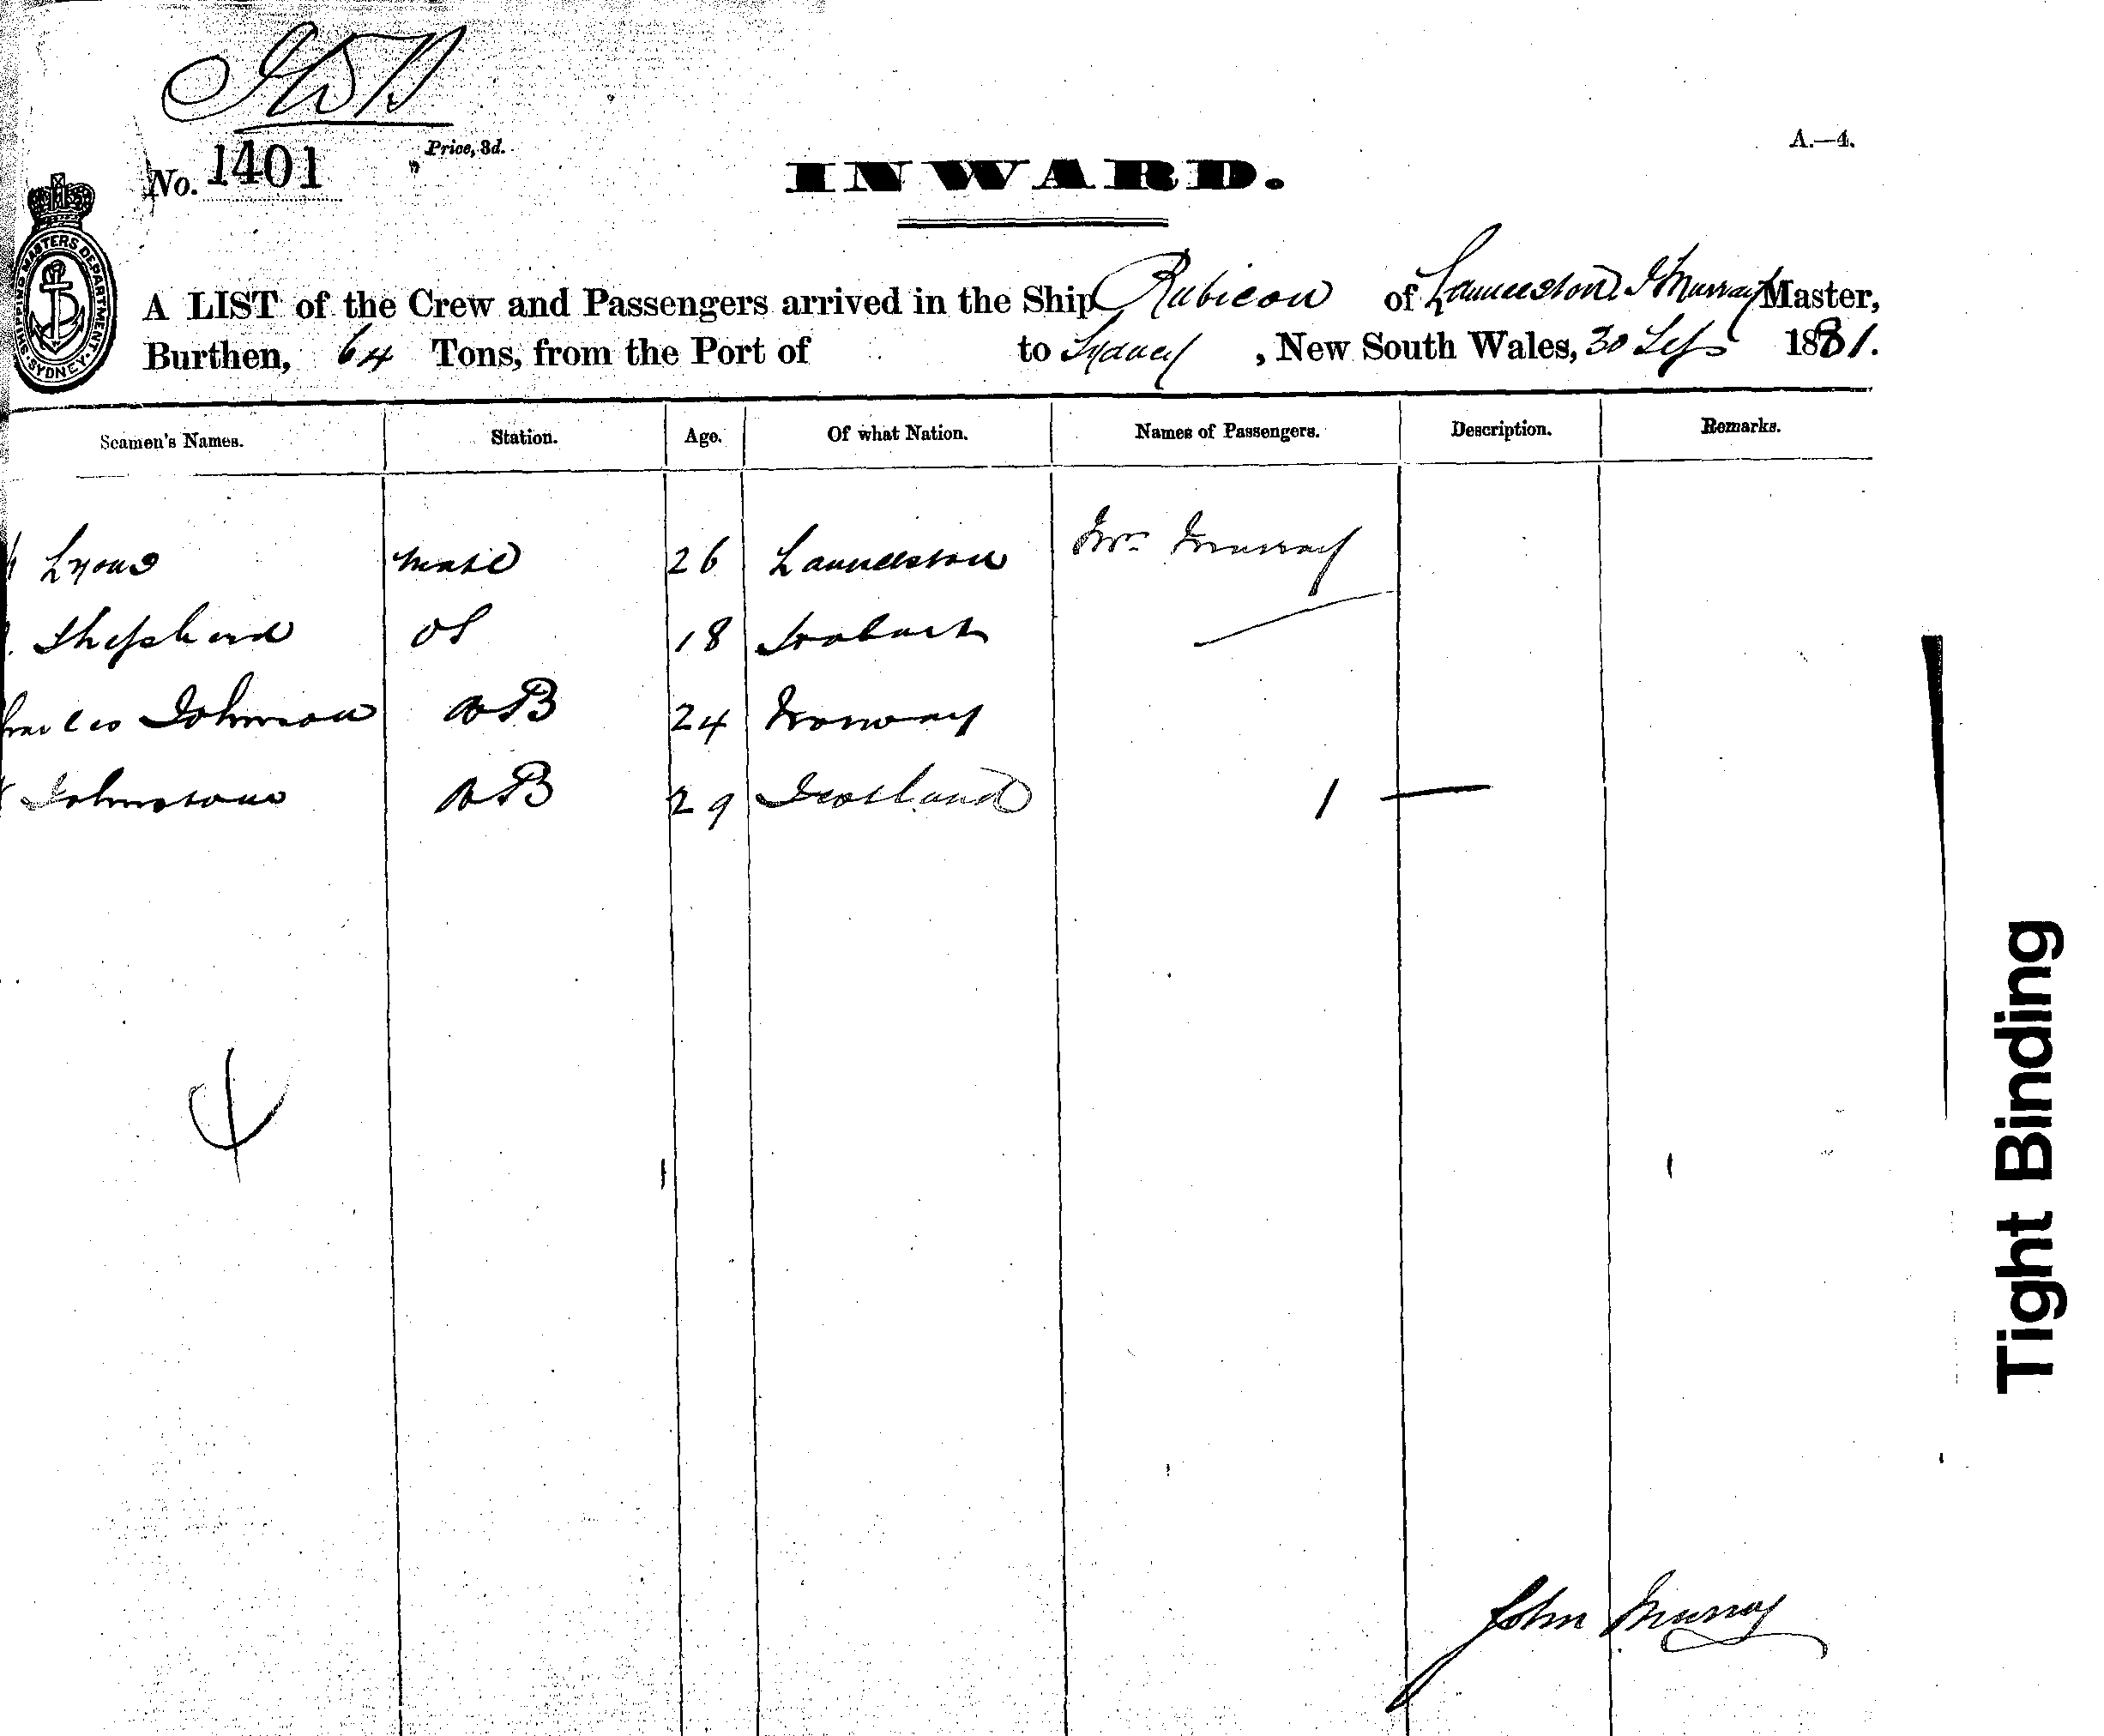 No. 1401 Price, 3d.
A.—4.
INWARD.
SHIPPING MASTERS DEPARTMENT. SYDNEY.
A LIST of the Crew and Passengers arrived in the Ship Rubicon of Launceston, J Murray Master,
Burthen, 64 Tons, from the Port of to Sydney, New South Wales, 30 Sep 1881.
Seamen's Names. Station. Age. Of what Nation. Names of Passengers. Description. Remarks.
Lyons mate 26 Launceston Mrs Murray
Shepherd OS 18 Hobart
Johnson AB 24 Norway
Johnstone AB 29 Scotland 1 —
John Murray
Tight Binding